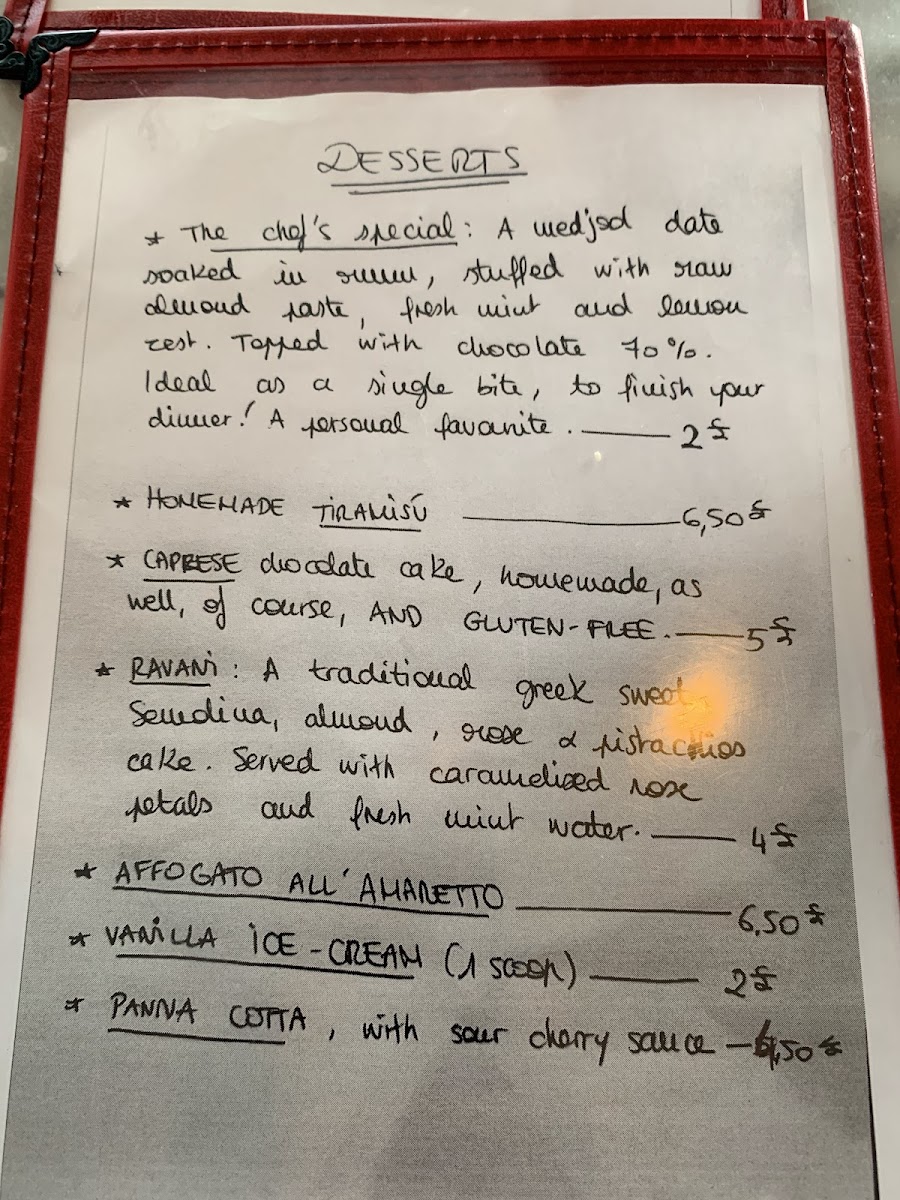 DESSERTS
* The chef's special: A medjool date
soaked in rum, stuffed with raw
almond paste, fresh mint and lemon
zest. Topped with chocolate 70%.
Ideal as a single bite, to finish your
dinner! A personal favorite. — 2£
* HOMEMADE TIRAMISÚ — 6,50£
* CAPRESE chocolate cake, homemade, as
well, of course, AND GLUTEN-FREE. — 5£
* RAVANi: A traditional greek sweet.
Semolina, almond, rose & pistachios
cake. Served with caramelized rose
petals and fresh mint water. — 4£
* AFFOGATO ALL'AMARETTO — 6,50£
* VANILLA iCE-CREAM (1 SCOOP) — 2£
* PANNA COTTA, with sour cherry sauce —,50£